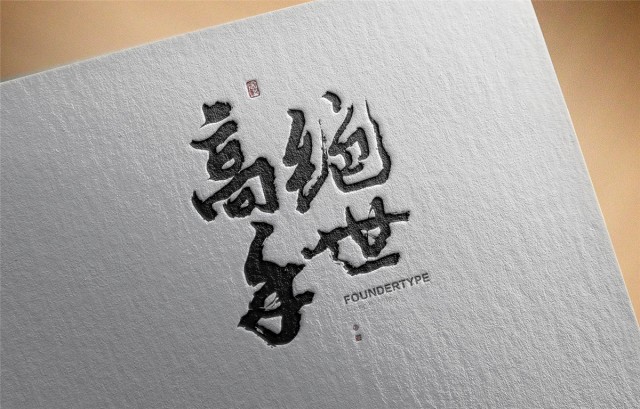 绝世
高手
FOUNDERTYPE